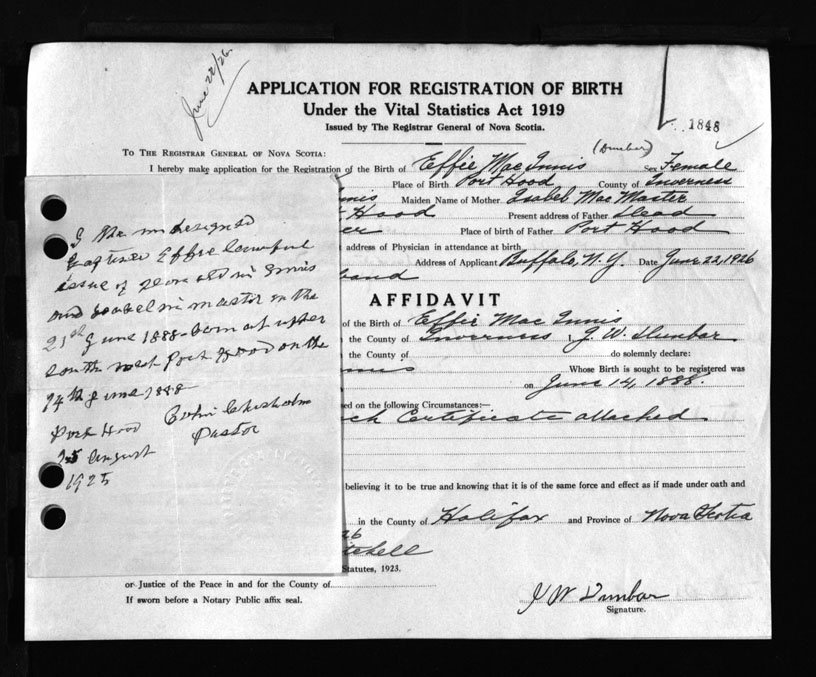 June 22/26.
APPLICATION FOR REGISTRATION OF BIRTH
Under the Vital Statistics Act 1919
Issued by The Registrar General of Nova Scotia.
1848
(Dunbar)
TO THE REGISTRAR GENERAL OF NOVA SCOTIA:
I hereby make application for the Registration of the Birth of Effie Mac Innis Sex Female
Place of Birth Port Hood County of Inverness
nnis Maiden Name of Mother Isabel Mac Master
t Hood Present address of Father Dead
er Place of birth of Father Port Hood
address of Physician in attendance at birth
Address of Applicant Buffalo, N.Y. Date June 22, 1926
band
AFFIDAVIT
of the Birth of Effie Mac Innis
n the County of Inverness I, J. W. Dunbar
the County of do solemnly declare:
nnis Whose Birth is sought to be registered was
on June 14, 1888.
ed on the following Circumstances:—
ch Certificate attached
believing it to be true and knowing that it is of the same force and effect as if made under oath and
in the County of Halifax and Province of Nova Scotia
26
tchell
Statutes, 1923.
or Justice of the Peace in and for the County of
If sworn before a Notary Public affix seal.
J W Dunbar
Signature.
I the undersigned
baptised Effie lawful
issue of Mc Innis
and Isabel Mc Master on the
21st June 1888 born at upper
South west Port Hood on the
14th June 1888
Port Hood Chisholm
Pastor
25 August
1925